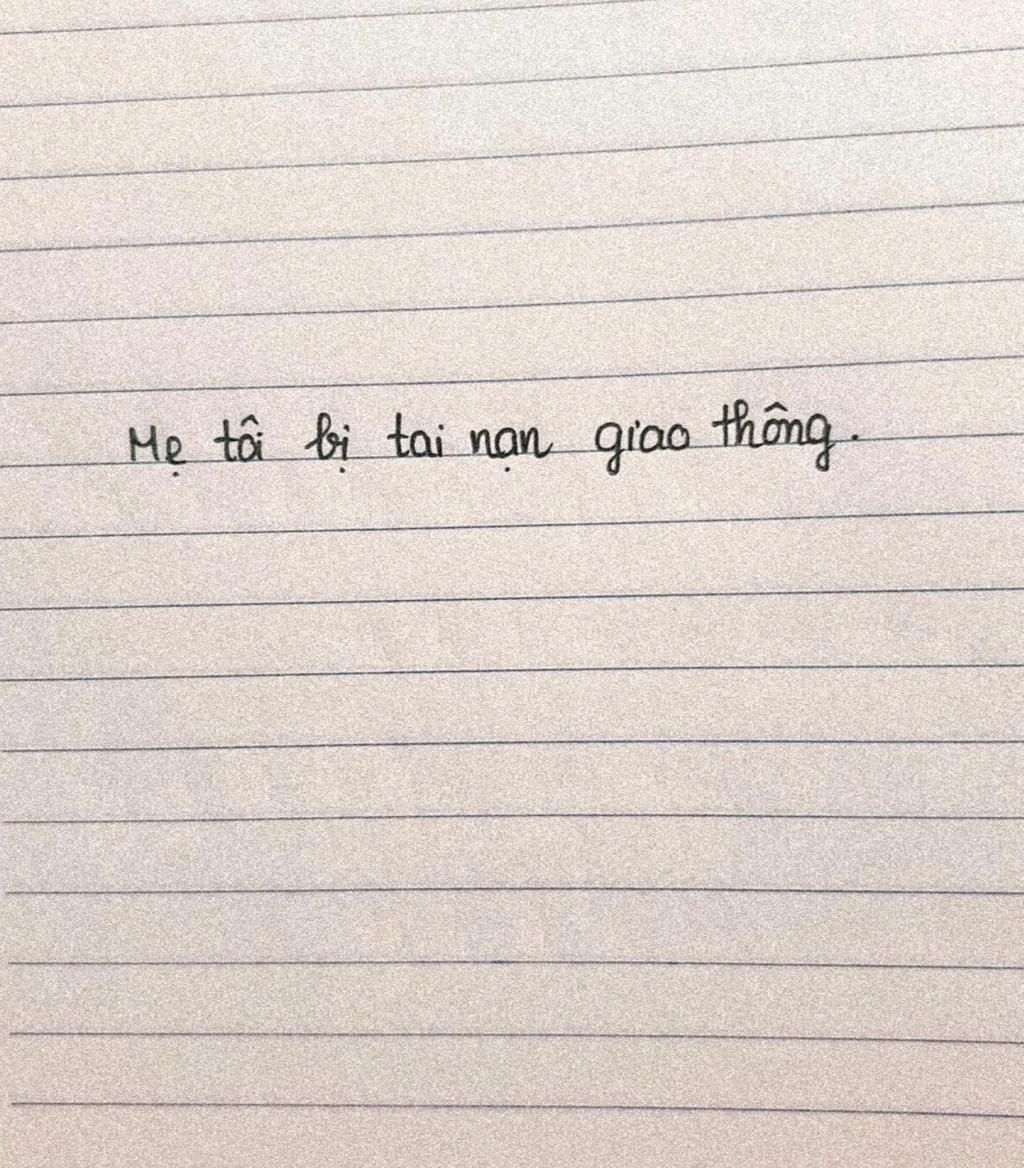 Mẹ tôi bị tai nạn giao thông.